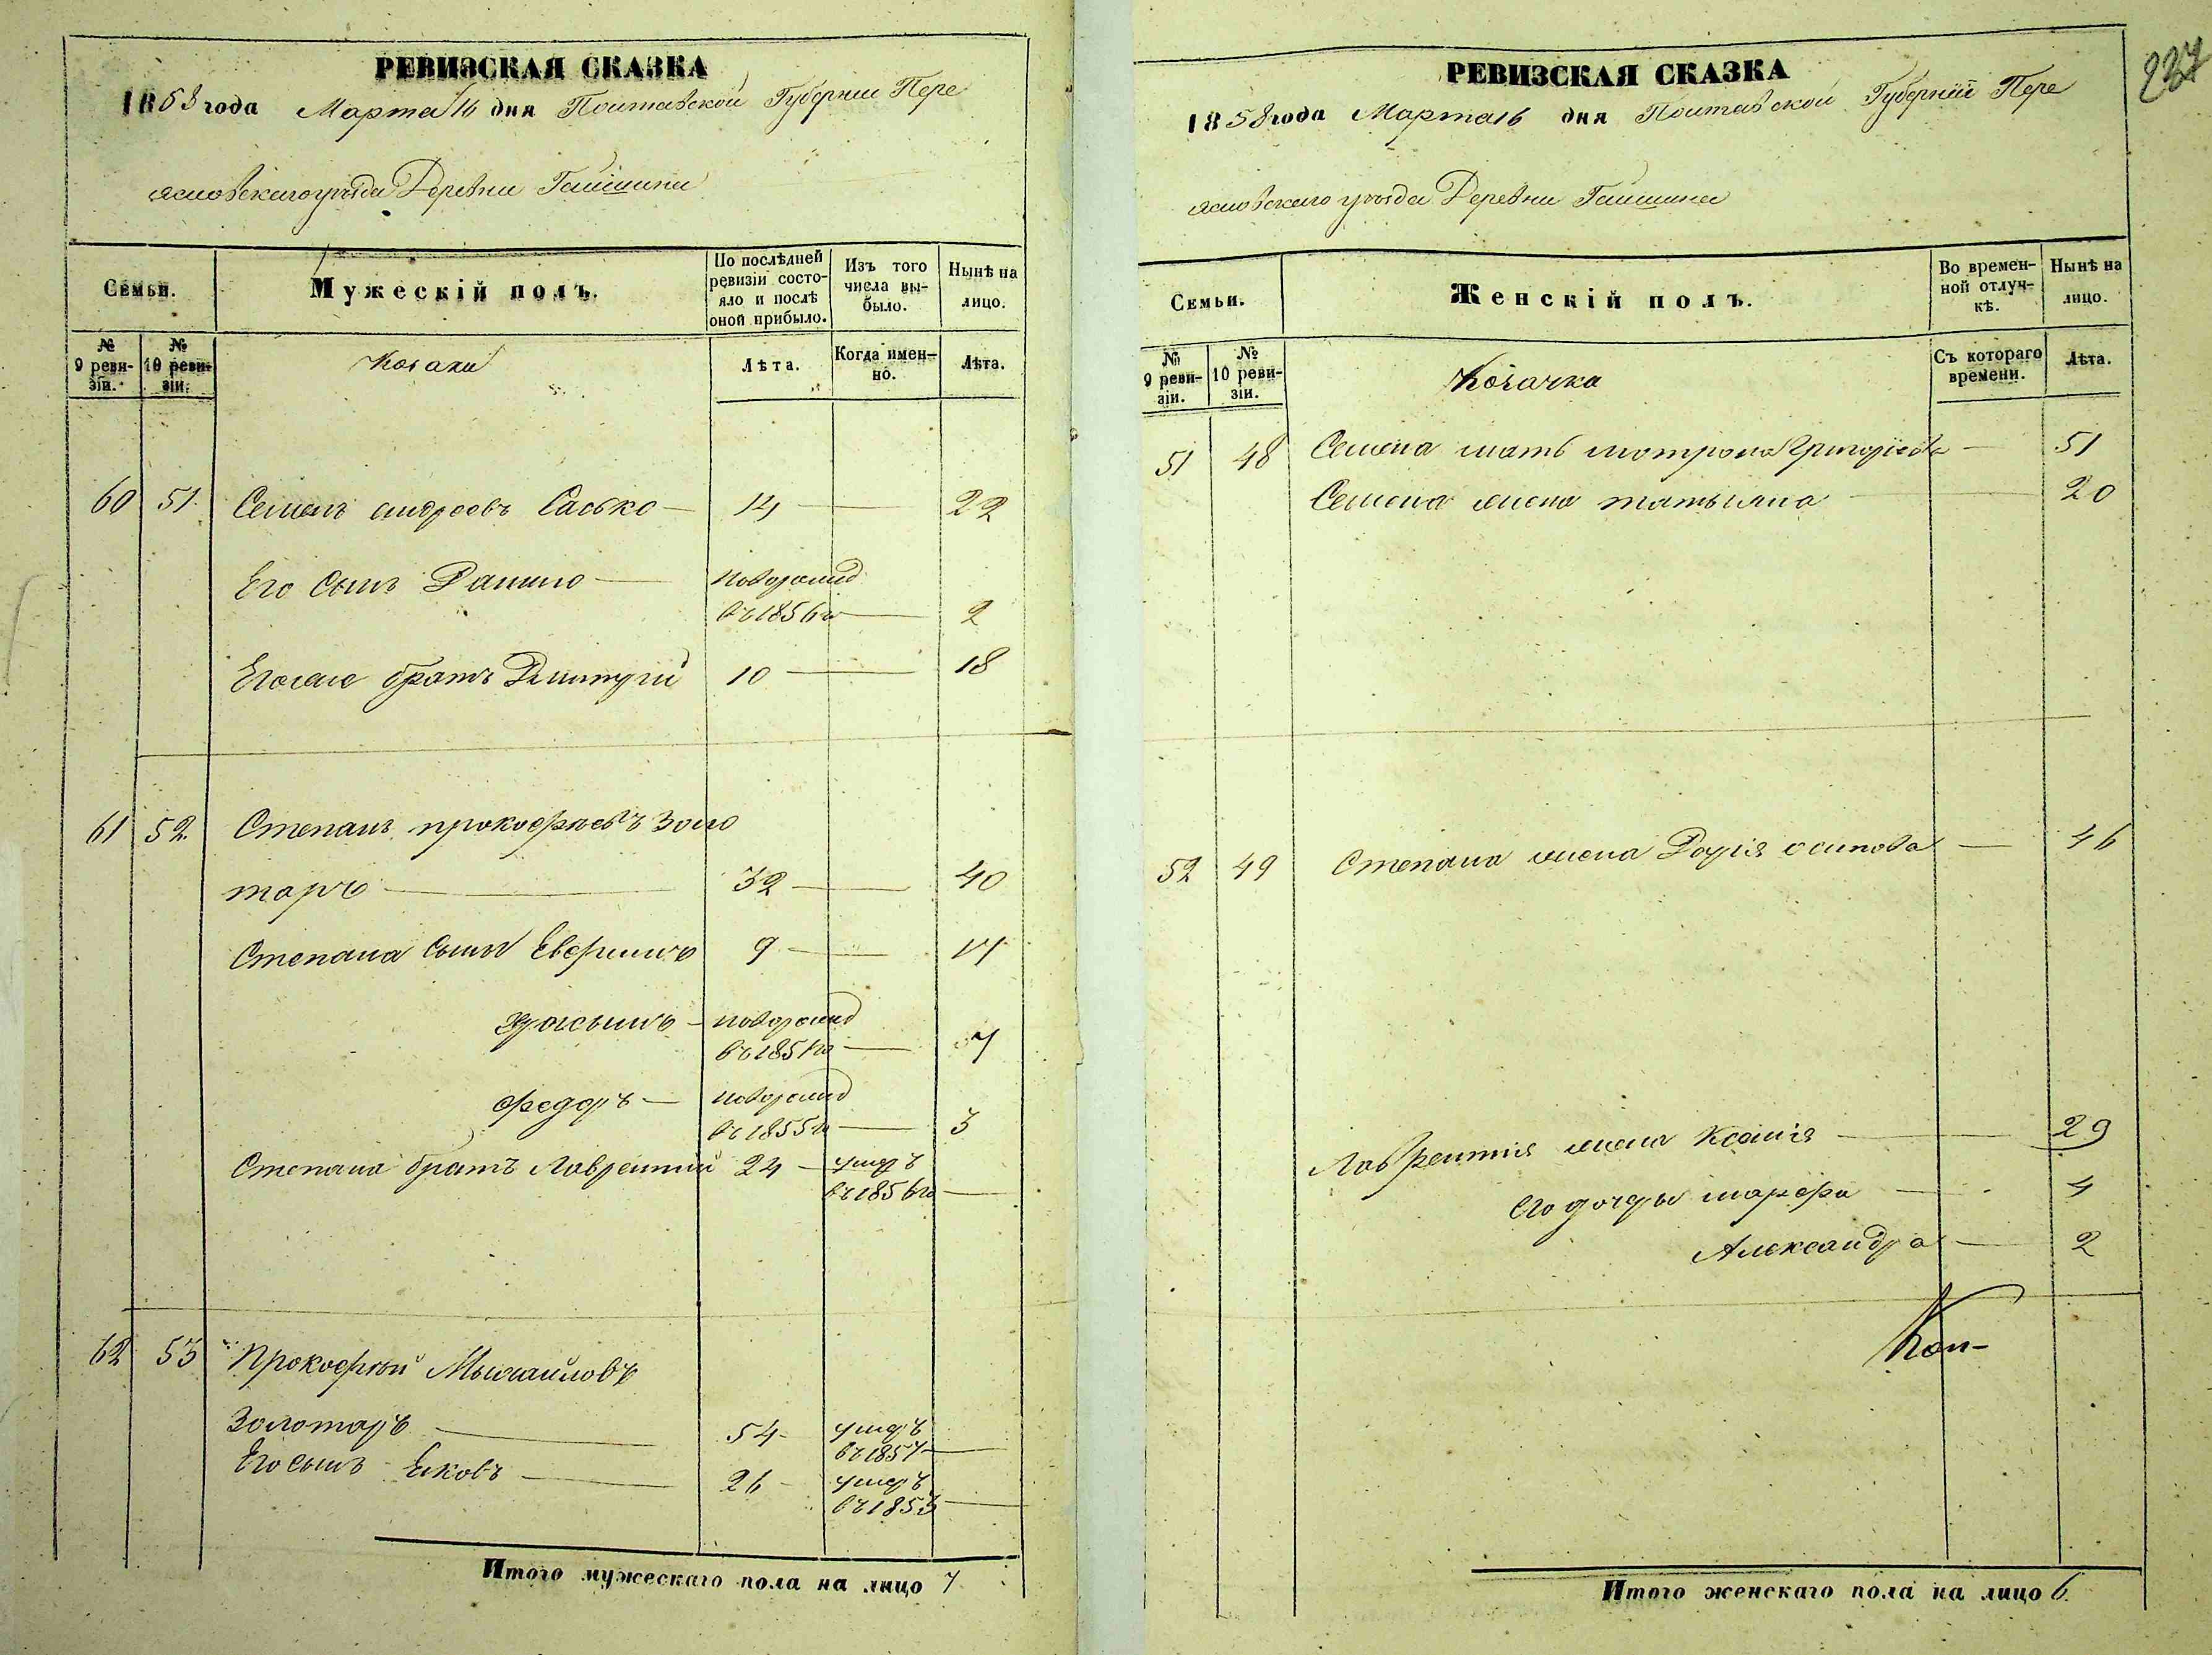 РЕВИЗСКАЯ СКАЗКА
1858 года Марта 16 дня Полтавской Губернии Пере
яславскаго уезда Деревни Гайшина
Семьи.
Мужескій полъ.
По послѣдней ревизіи состояло и послѣ оной прибыло.
Изъ того числа выбыло.
Нынѣ на лицо.
№ 9 ревизіи.
№ 10 ревизіи.
Козаки
Лѣта.
Когда именно.
Лѣта.
60 51 Семенъ андреевъ Сасько 14 22
Его сынъ Данило новорожд
въ 1856 г 2
Егоже братъ Дмитрий 10 18
61 52 Степанъ прокофьевъ Золо
таръ 32 40
Степана сыны 9 17
новорожд
въ 1851 г 7
Федоръ новорожд
въ 1855 г 3
Степана братъ Лаврентий 24 умеръ
въ 1856 г
62 53 Прокофий Михайловъ
Золотаръ 54 умеръ
въ 1857
Его сынъ Яковъ 26 умеръ
въ 1853
Итого мужескаго пола на лицо 7
237
РЕВИЗСКАЯ СКАЗКА
1858 года Марта 16 дня Полтавской Губерніи Пере
яславскаго уезда Деревни Гайшина
Семьи.
Женскій полъ.
Во временной отлучкѣ.
Нынѣ на лицо.
№ 9 ревизіи.
№ 10 ревизіи.
Козачка
Съ котораго времени.
Лѣта.
51 48 Семена мать мотрона Григорієва 51
Семена жена татьяна 20
52 49 Степана жена Дарія осипова 46
Лаврентия жена Ксенія 29
его дочеры марфа 4
Александра 2
Коп-
Итого женскаго пола на лицо 6